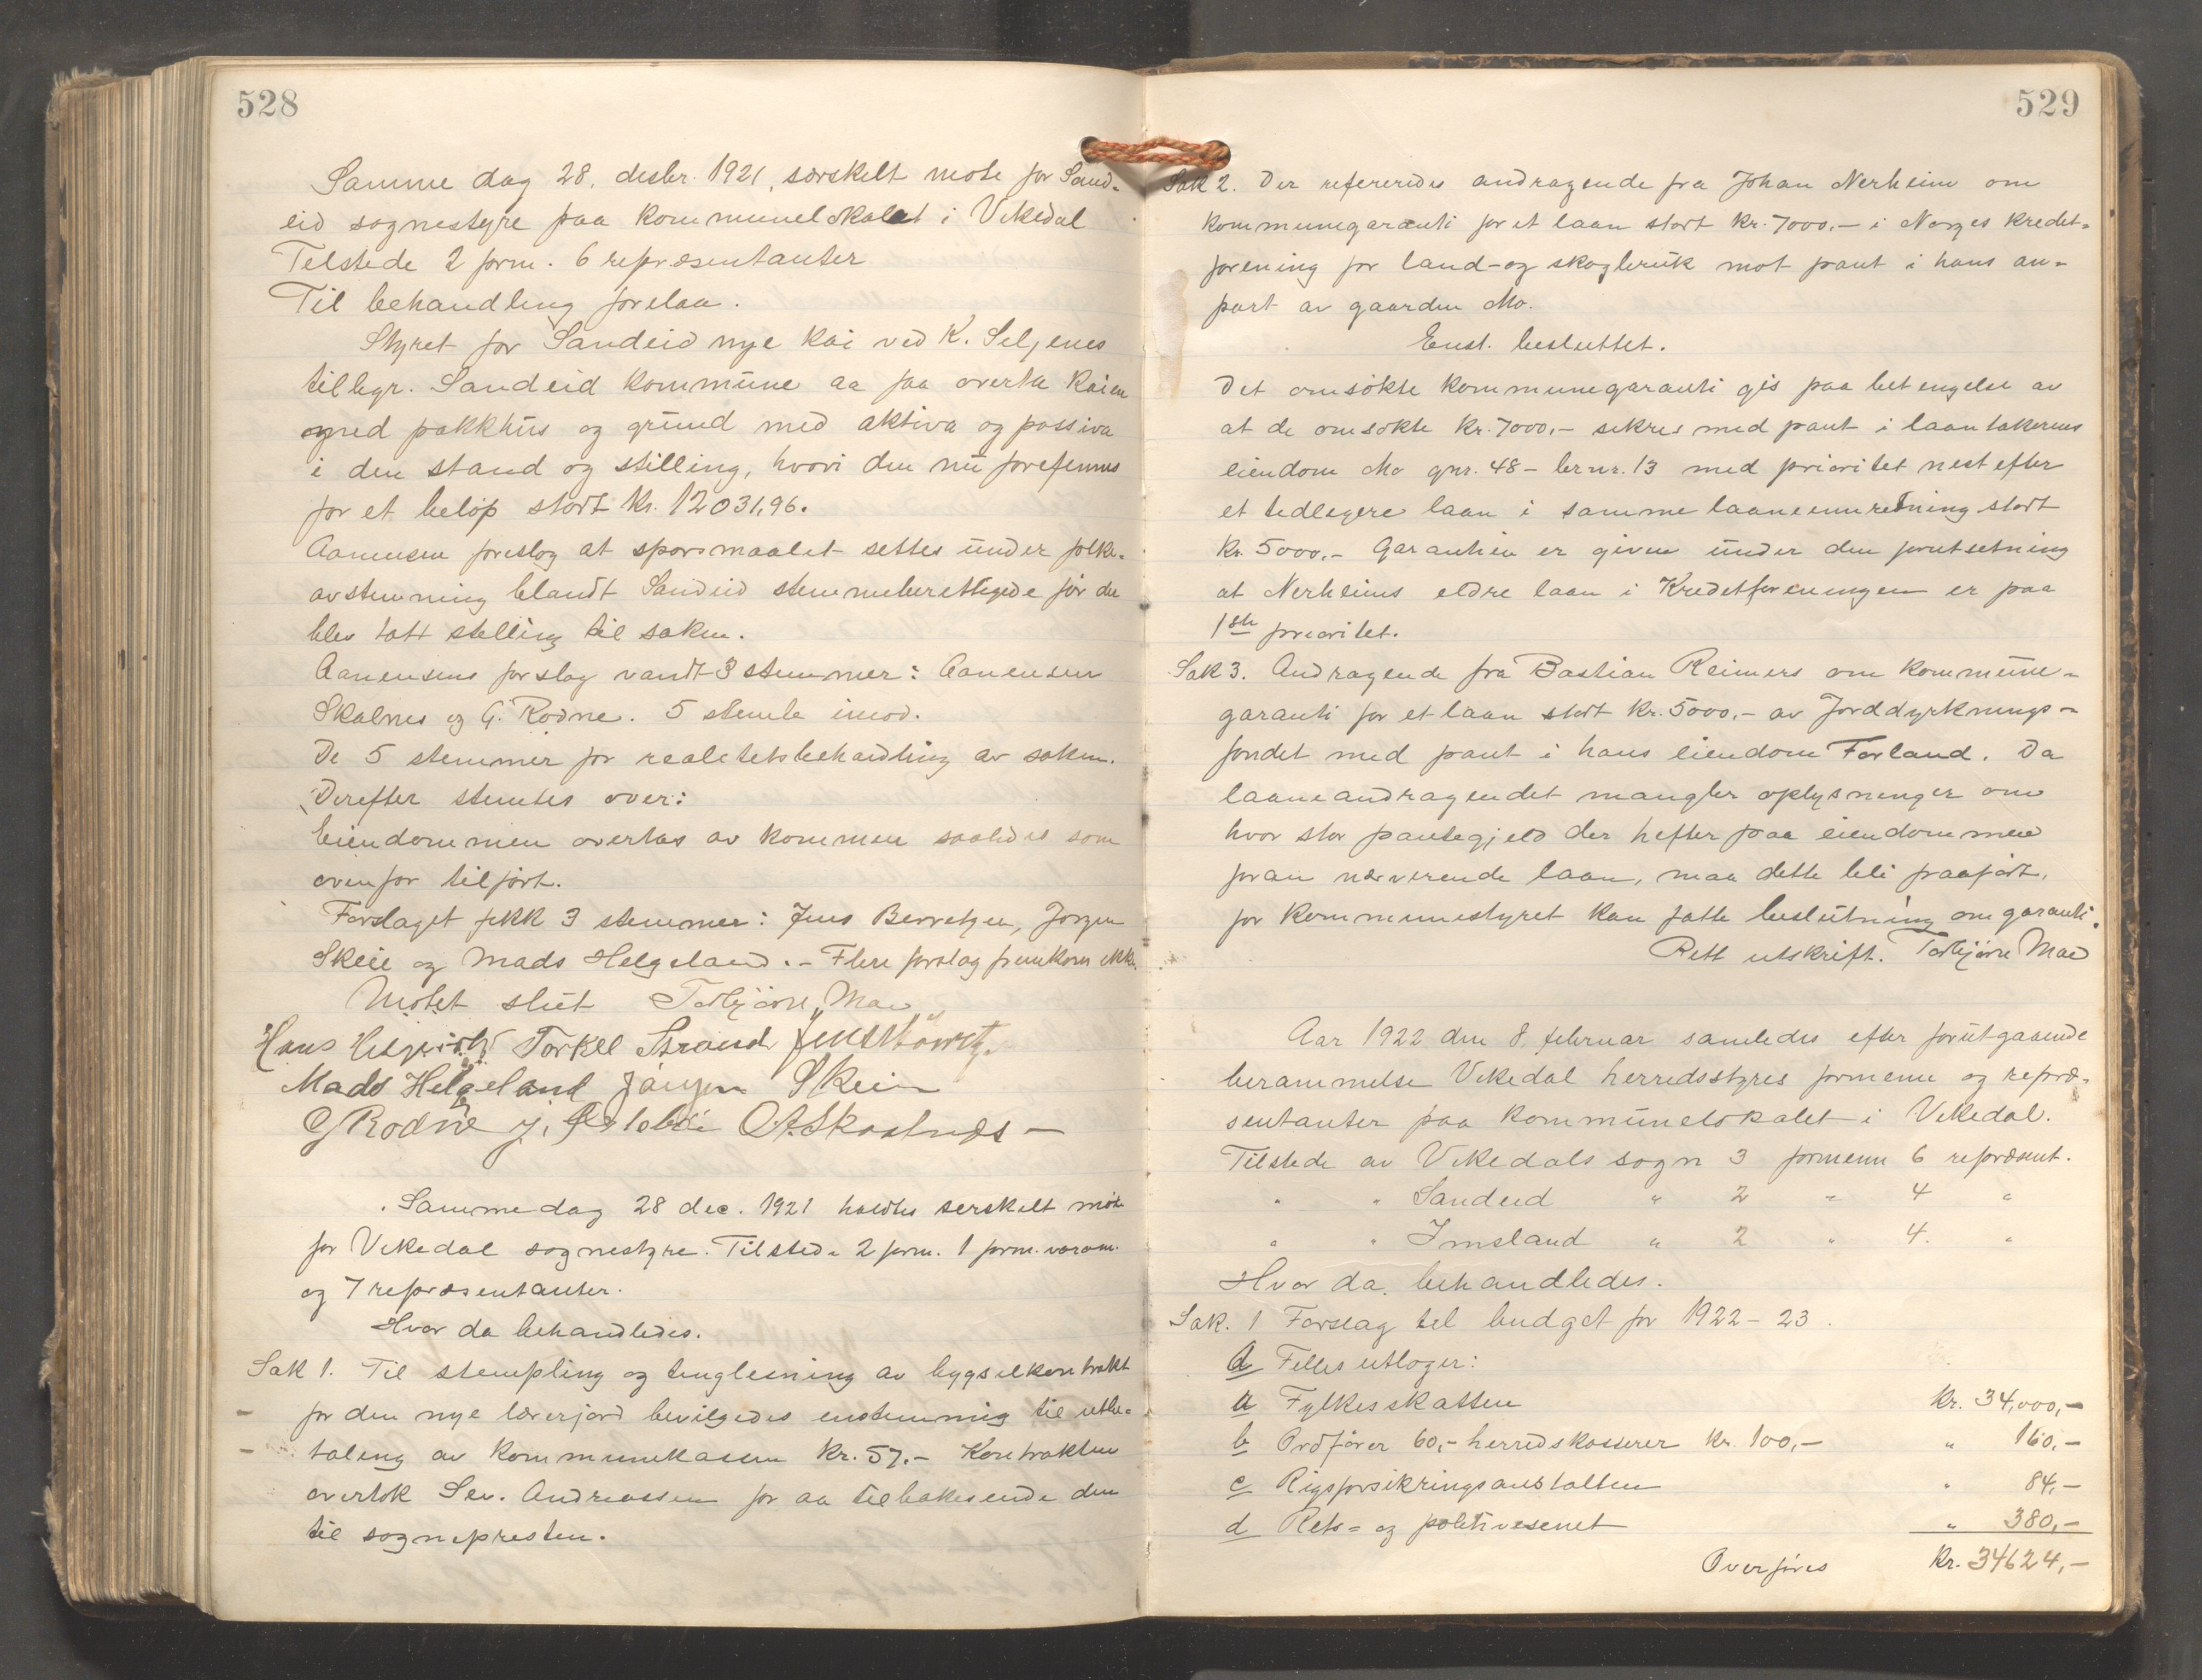 528
Samme dag 28. desbr. 1921, særskelt møte for Sand-
eid sognestyre paa kommunelokalet i Vikedal
Telstede 2 form. 6 repræsentanter
Til behandling forelaa.
Styret for Sandeid nye kai ved K. Seljenes
tilbyr. Sandeid kommune aa faa overta kaien
med pakkhus og grund med aktiva og passiva
i den stand og stilling, hvori den nu forefinnes
for et beløp stort kr. 12031,96.
Aanensen foreslog at spørsmaalet settes under folke-
avstemning blandt Sandeid stemmeberettigede før der
blev tatt stelling til saken.
Aanensens forslag vandt 3 stemmer: Aanensen
Skalnes og G. Rødne. 5 stemte imod.
De 5 stemmer for realitetsbehandling av saken.
Derefter stemtes over:
Eiendommen overtas av kommen saaledes som
ovenfor tilført.
Forslaget fekk 3 stemmer: Jens Berretzen, Jørgen
Skeie og Mads Helgeland. - Flere forslag fremkom ikke.
Møtet slut Torbjørn Mæ
Hans Torkel Strand
Mads Helgeland Jørgen Skeie
G Rødne
Samme dag 28 dec. 1921 holdtes serskelt møte
for Vikedal sognestyre. Tilstede 2 form. 1 form. varam.
og 7 repræsentanter.
Hvor da behandledes.
Sak 1. Til stempling og tinglesning av bygselkontrakt
for den nye lærerjord bevilgedes enstemmig til utbe-
taling av kommunekassen kr. 57.- Kontrakten
overtok Sev. Andreassen for aa tilbakesende den
til sognepresten.
529
Sak 2. Der refereredes andragende fra Johan Nerheim om
kommunegaranti for et laan stort kr. 7000.- i Norges kredet-
forening for land- og skogbruk mot pant i hans an-
part av gaarden Mo.
Enst. besluttet.
Det omsøkte kommunegaranti gis paa betengelse av
at de omsøkte kr. 7000,- sikres med pant i laantakerens
eiendom Mo gnr. 48 - brnr. 13 med prioritet nest efter
et tedlegere laan i samme laaneinnretning stort
kr. 5000.- Garantien er given under den forutsetning
at Nerheims eldre laan i Kredetforeningen er paa
1ste prioritet.
Sak 3. Andragende fra Bastian Reimers om kommune-
garanti for et laan stort kr. 5000.- av Jorddyrknings-
fondet med pant i hans eiendom Førland. Da
laaneandragendet mangler oplysninger om
hvor stor pantegjeld der hefter paa eiendommen
foran nærværende laan, maa dette bli paaført,
før kommunestyret kan fatte beslutning om garanti.
Rett utskrift. Torbjørn Mæ
Aar 1922 den 8. februar samledes efter forutgaaende
berammelse Vikedal herredsstyres formenn og repræ-
sentanter paa kommunelokalet i Vikedal.
Tilstede av Vikedals sogn 3 formenn 6 repræsent.
" " Sandeid " 2 " 4 "
" " Imsland " 2 " 4. "
Hvor da behandledes.
Sak. 1 Forslag til budget for 1922 - 23.
A Felles utlæger:
a Fylkesskatten kr. 34,000,-
b Ordfører 60,- herredskasserer kr. 100,- " 160,-
c Rigsforsikringsanstalten " 84,-
d Rets- og politivesenet " 380,-
Overføres kr. 34624,-